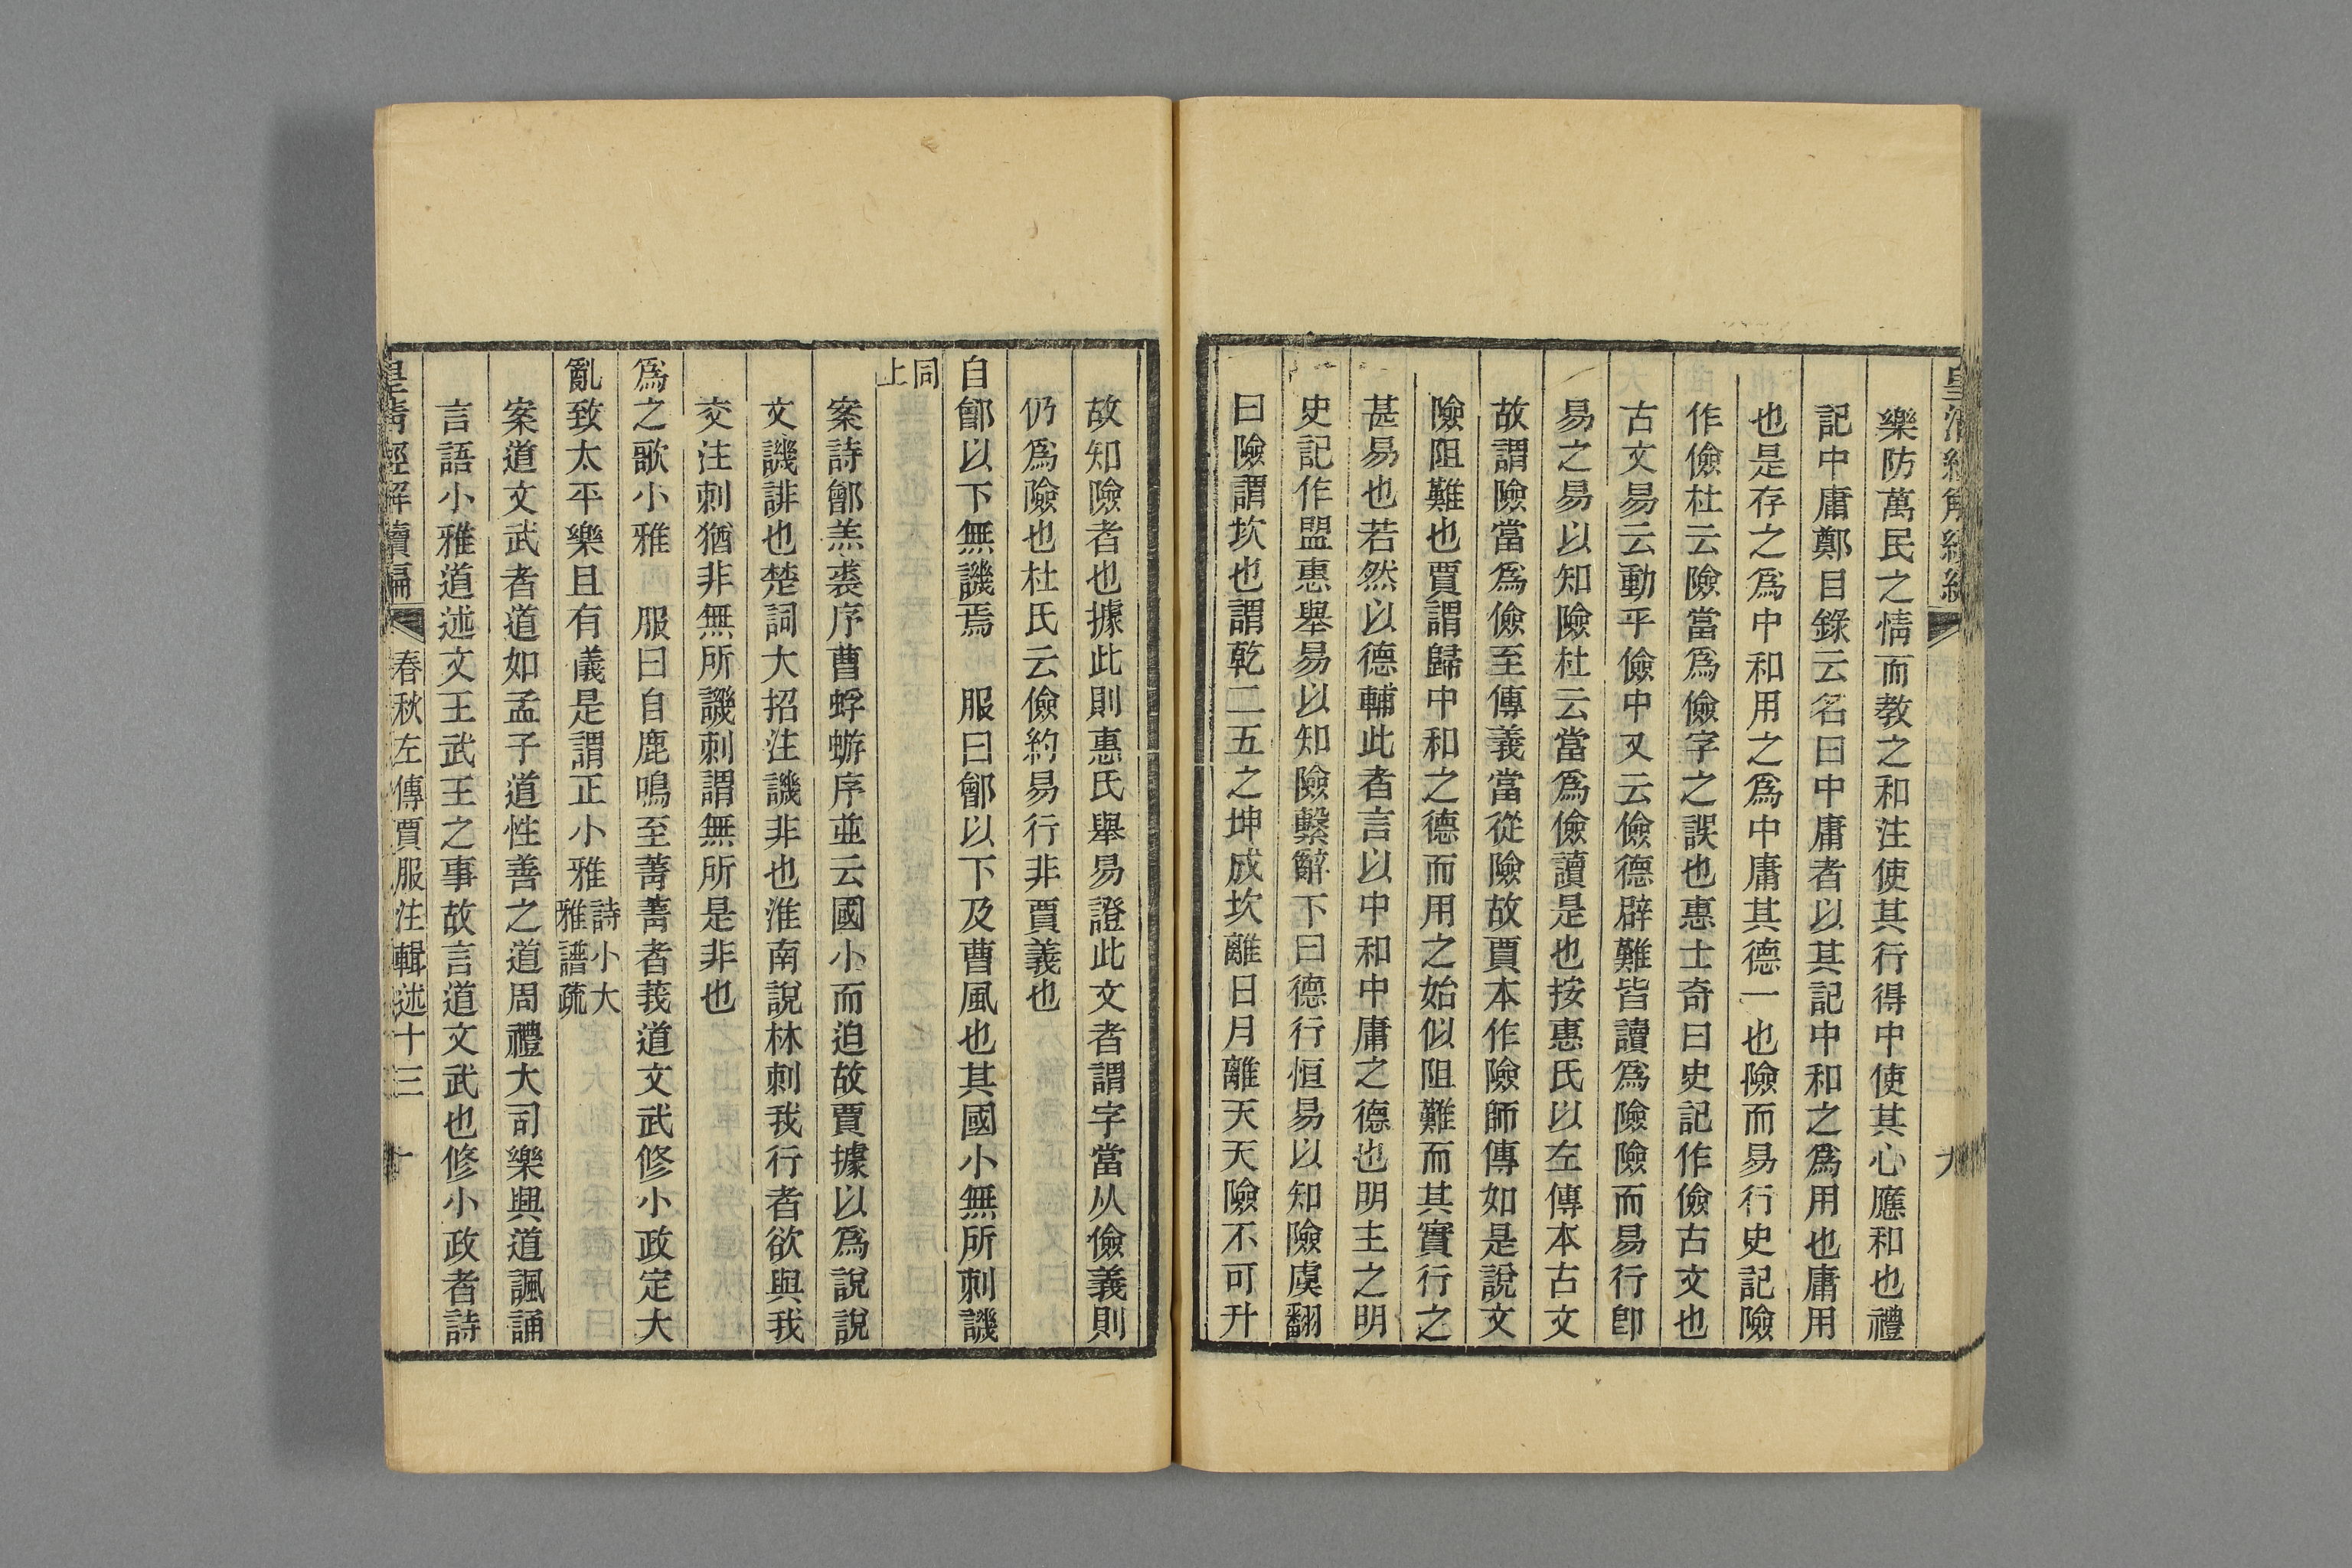 樂防萬民之情而教之和注使其行得中使其心應和也禮
記中庸鄭目錄云名曰中庸者以其記中和之爲用也庸用
也是存之爲中和用之爲中庸其德一也險而易行史記險
作儉杜云險當爲儉字之誤也惠士奇曰史記作儉古文也
古文易云動乎儉中又云儉德辟難皆讀爲險險而易行卽
易之易以知險杜云當爲儉讀是也按惠氏以左傳本古文
故謂險當爲儉至傳義當從險故賈本作險師傳如是說文
險阻難也賈謂歸中和之德而用之始似阻難而其實行之
甚易也若然以德輔此者言以中和中庸之德也明主之明
史記作盟惠舉易以知險繫辭下曰德行恒易以知險虞翻
曰險謂坎也謂乾二五之坤成坎離日月離天天險不可升
故知險者也據此則惠氏舉易證此文者謂字當从儉義則
仍爲險也杜氏云儉約易行非賈義也
自鄶以下無譏焉 服曰鄶以下及曹風也其國小無所刺譏
同上
案詩鄶羔裘序曹蜉蝣序並云國小而迫故賈據以爲說說
文譏誹也楚詞大招注譏非也淮南說林刺我行者欲與我
交注刺猶非無所譏刺謂無所是非也
爲之歌小雅 服曰自鹿鳴至菁菁者莪道文武修小政定大
亂致太平樂且有儀是謂正小雅詩小大雅譜疏
案道文武者道如孟子道性善之道周禮大司樂興道諷誦
言語小雅道述文王武王之事故言道文武也修小政者詩
皇清經解續編 春秋左傳賈服注輯述十三 十